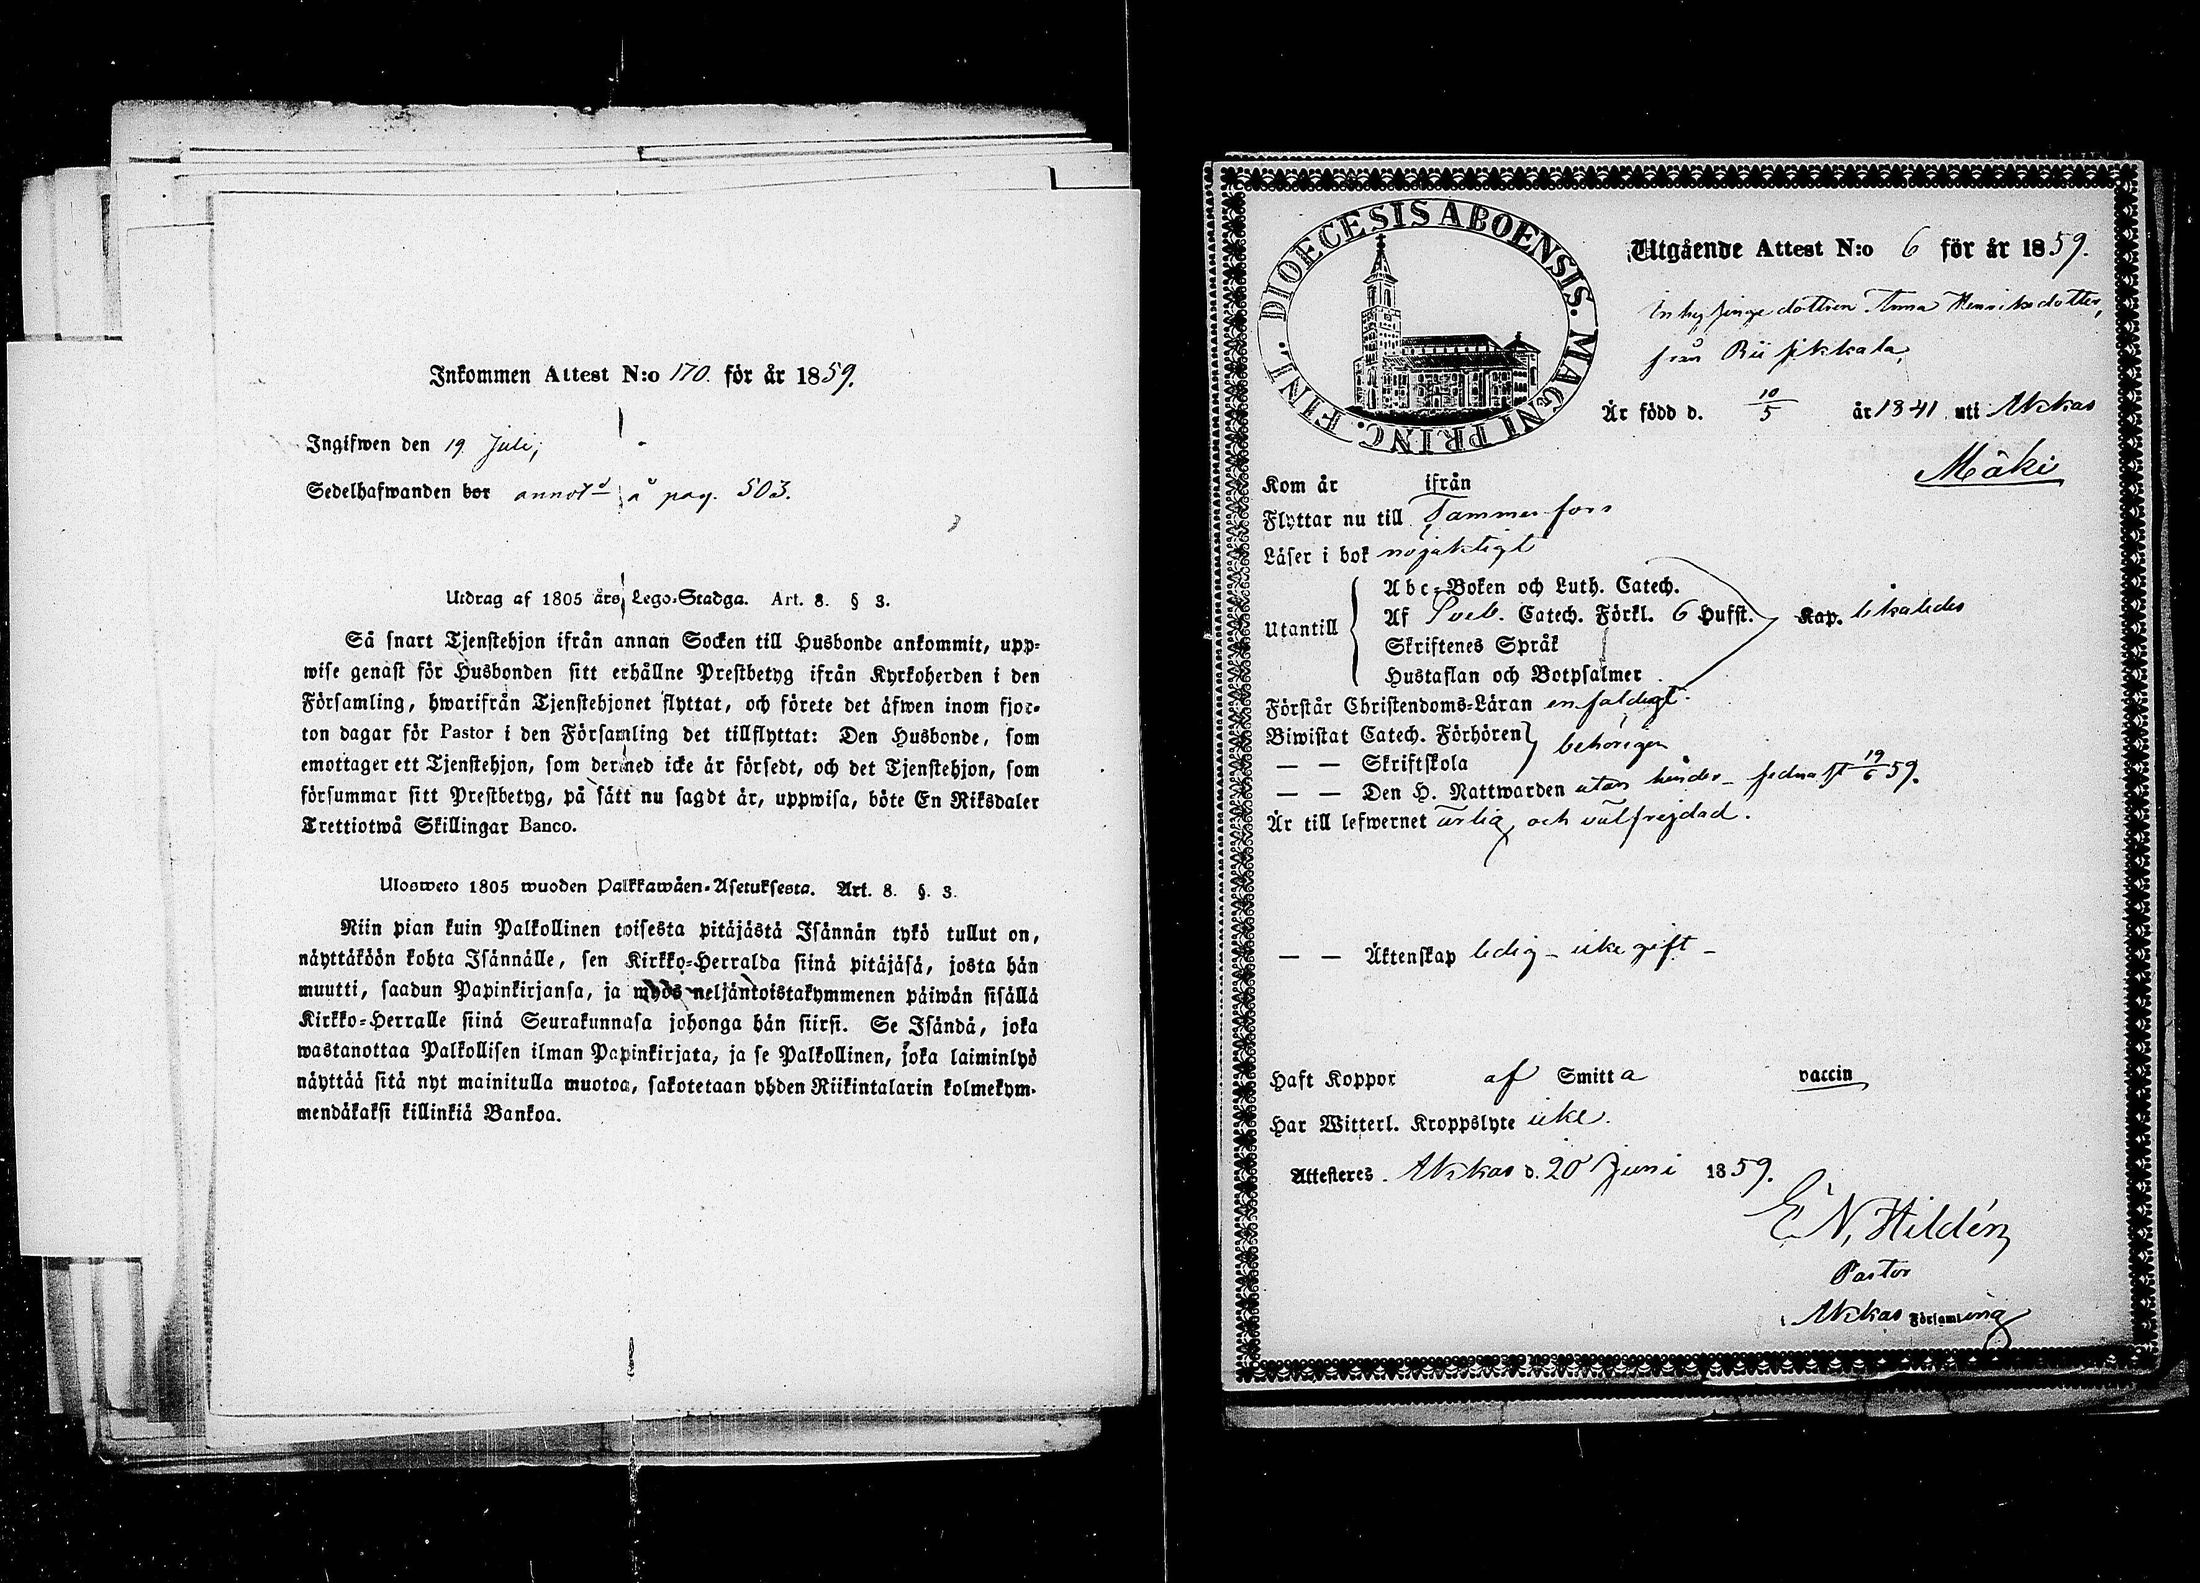 Inkommen Attest N:o 170. för år 1859.
Ingifwen den 19 Juli,
Sedelhafwanden bor annotd å pag. 503.
Utdrag af 1805 års Lego-Stadga. Art. 8. § 3.
Så snart Tjenstehjon ifrån annan Socken till Husbonde ankommit, upp-
wise genast för Husbonden sitt erhållne Prestbetyg ifrån Kyrkoherden i den
Församling, hwarifrån Tjenstehjonet flyttat, och förete det äfwen inom fjor-
ton dagar för Pastor i den Församling det tillflyttat: Den Husbonde, som
emottager ett Tjenstehjon, som dermed icke är försedt, och det Tjenstehjon, som
försummar sitt Prestbetyg, på sätt nu sagdt är, uppwisa, böte En Riksdaler
Trettiotwå Skillingar Banco.
Ulosweto 1805 wuoden Palkkawäen-Asetuksesta. Art. 8. §. 3.
Niin pian kuin Palkollinen toisesta pitäjästä Isännän tykö tullut on,
näyttäköön kohta Isännälle, sen Kirkko-Herralda siinä pitäjäsä, josta hän
muutti, saadun Papinkirjansa, ja myös neljäntoistakymmenen päiwän sisällä
Kirkko-Herralle siinä Seurakunnasa johonga hän siirsi. Se Isändä, joka
wastanottaa Palkollisen ilman Papinkirjata, ja se Palkollinen, joka laiminlyö
näyttää sitä nyt mainitulla muotoa, sakotetaan yhden Riikintalarin kolmekym-
mendäkaksi killinkiä Bankoa.
DIOECESIS ABOENSIS. MAGNI PRINC. FINL.
Utgående Attest N:o 6 för år 1859.
Inhysinge dottren Anna Henriksdotter,
från Riipikkala,
Är född d. 10/5 år 1841 uti Akkas
Mäki
Kom år ifrån
Flyttar nu till Tammerfors
Läser i bok nöjaktigt
Abc-Boken och Luth. Catech.
Utantill Af Sveb. Catech. Förkl. 6 Hufst. Kap. likaledes
Skriftenes Språk
Hustaflan och Botpsalmer
Förstår Christendoms-Läran enfaldigt.
Biwistat Catech. Förhören behörigen
— — Skriftskola
— — Den H. Nattwarden utan hinder – sednast 19/6 59.
Är till lefwernet ärlig och välfrejdad.
— — Äktenskap ledig – icke gift –
Haft Koppor af Smitta vaccin
Har Witterl. Kroppslyte icke.
Attesteres. Akkas d. 20 Juni 1859.
E N, Hildén
Pastor
i Akkas Församling